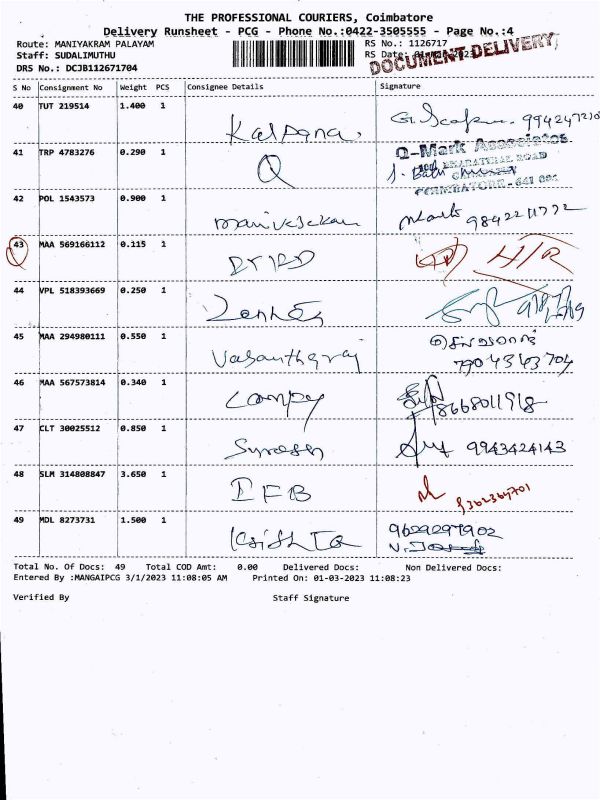 THE PROFESSIONAL COURIERS, Coimbatore
Delivery Runsheet - PCG - Phone No.:0422-3505555 - Page No.:4
Route: MANIYAKRAM PALAYAM
RS No.: 1126717
Staff: SUDALIMUTHU
RS Date:
DOCUMENT DELIVERY
DRS No.: DCJB112671704
S No Consignment No Weight PCS Consignee Details Signature
40 TUT 219514 1.400 1
Kalpana
41 TRP 4783276 0.290 1
Q
Q-Mark Associates
BHARATHIAR ROAD
COIMBATORE-641
42 POL 1543573 0.900 1
9842211772
43 MAA 569166112 0.115 1
44 VPL 518393669 0.250 1
45 MAA 294980111 0.550 1
Vasanthgraj
7904343704
46 MAA 567573814 0.340 1
8668011918
47 CLT 30025512 0.850 1
9943424143
48 SLM 314808847 3.650 1
IFB
49 MDL 8273731 1.500 1
9629297902
Total No. Of Docs: 49 Total COD Amt: 0.00 Delivered Docs: Non Delivered Docs:
Entered By :MANGAIPCG 3/1/2023 11:08:05 AM Printed On: 01-03-2023 11:08:23
Verified By Staff Signature